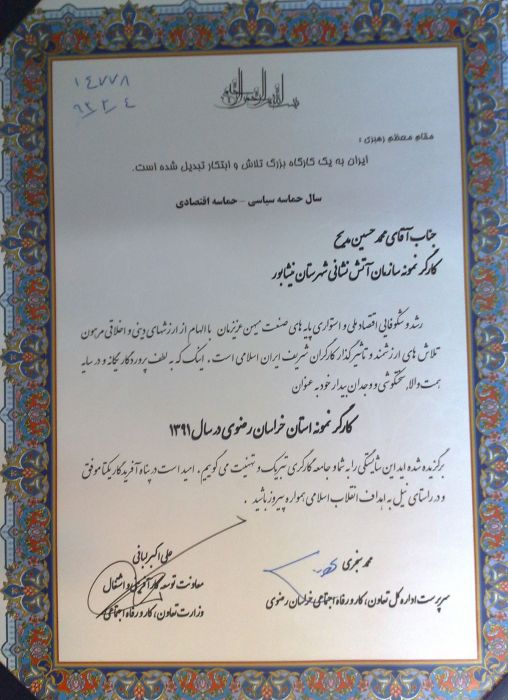 ۱۴۷۷۸
۹۲/۲/۴
بسم الله الرحمن الرحیم
مقام معظم رهبری :
ایران به یک کارگاه بزرگ تلاش و ابتکار تبدیل شده است.
سال حماسه سیاسی - حماسه اقتصادی
جناب آقای محمد حسین مدیح
کارگر نمونه سازمان آتش نشانی شهرستان نیشابور
رشد و شکوفایی اقتصاد ملی و استواری پایه های صنعت میهن عزیزمان با الهام از ارزشهای دینی و اخلاقی مرهون
تلاش های ارزشمند و تاثیرگذار کارگران شریف ایران اسلامی است . اینک که به لطف پروردگار یگانه و در سایه
همت والا، سختکوشی و وجدان بیدار خود به عنوان
کارگر نمونه استان خراسان رضوی در سال ۱۳۹۱
برگزیده شده اید این شایستگی را به شما و جامعه کارگری تبریک و تهنیت می گوییم. امید است در پناه آفریدگار یکتا موفق
و در راستای نیل به اهداف انقلاب اسلامی همواره پیروز باشید .
محمد سنجری
سرپرست اداره کل تعاون، کار و رفاه اجتماعی خراسان رضوی
علی اکبر لبانی
معاونت توسعه کارآفرینی و اشتغال
وزارت تعاون، کار و رفاه اجتماعی